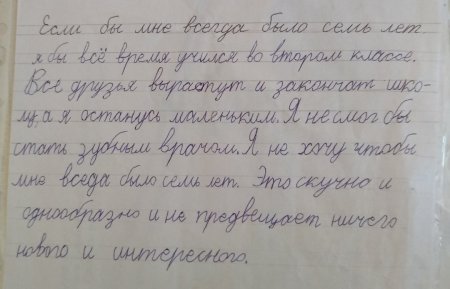 Если бы мне всегда было семь лет
я бы всё время учился во втором классе.
Все друзья вырастут и закончат шко-
лу, а я останусь маленьким. Я не смог бы
стать зубным врачом. Я не хочу чтобы
мне всегда было семь лет. Это скучно и
однообразно и не предвещает ничего
нового и интересного.